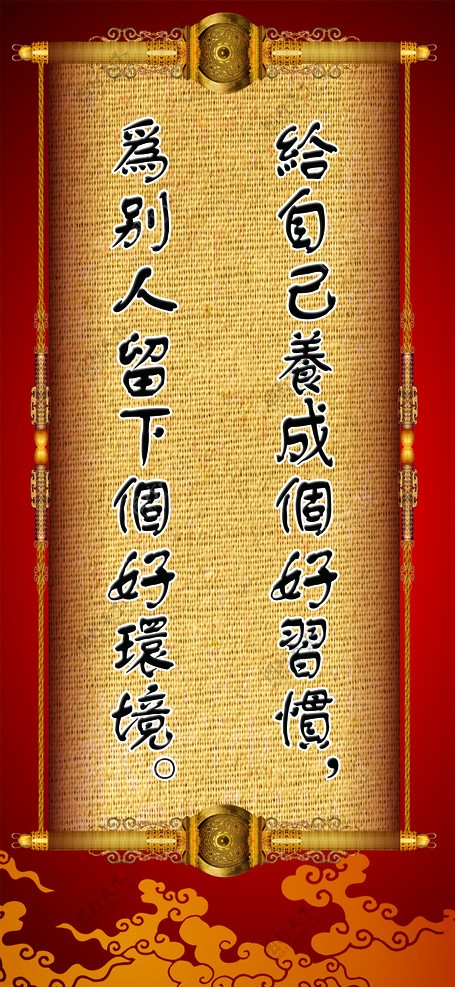 給自己養成個好習慣，
爲别人留下個好環境。